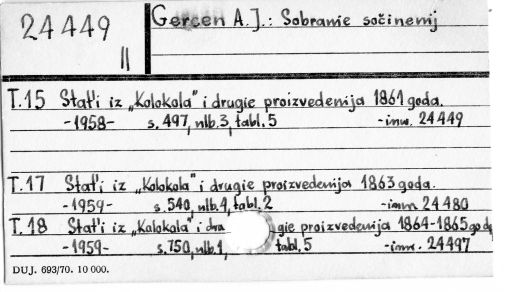 24449 Gercen A.J.: Sobranie sočinenij
II
T.15 Stat'i iz „Kolokola" i drugie proizvedenija 1861 goda.
-1958- s. 497, nlb. 3, tabl. 5 -inw. 24449
T.17 Stat'i iz „Kolokola" i drugie proizvedenija 1863 goda.
-1959- s. 540, nlb. 4, tabl. 2 -inw. 24480
T.18 Stat'i iz „Kolokola" i dru gie proizvedenija 1864-1865 god
-1959- s. 750, nlb. 1, tabl. 5 -inw. 24497
DUJ. 693/70. 10 000.